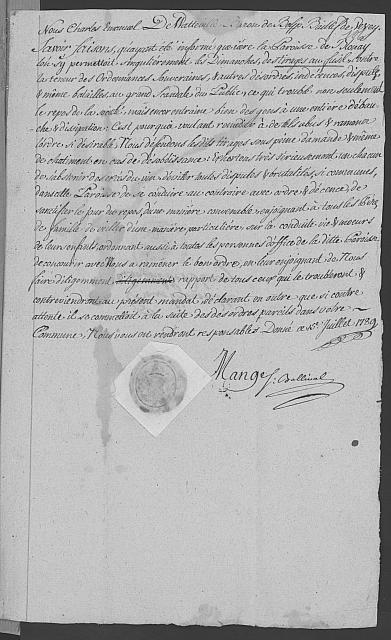 Nous Charles Emanuel De Watteville Baron de Belp, Baillif De Vevey,
Savoir faisons, qu'ayant été informé que riere la Paroisse de Blonay
l'on s'y permettoit singulierement les Dimanches, des tirages au fusil contre
la teneur des Ordonnances Souveraines, & autres désordres, indécences, disputes
& même batailles, au grand scandale du Public, ce qui trouble non seulement
le repos de la société, mais encor entraine bien des gens à une entiere débau
che & dissipation. C'est pourquoi voulant remedier à de tels abus & ramener
l'ordre si desirable, Nous defendons les dits tirages sous peine d'amande & même
de chatiment en cas de desobéissance, Exhortons très serieusement un chacun
de s'abstenir des excès du vin, d'éviter toutes disputes & brutalités si communes,
dans cette Paroisse de se conduire au contraire avec ordre & décence, de
sanctifier le jour du repos d'une maniere convenable, enjoignant à tous les Peres
de famille de veiller d'une maniere particuliere sur la conduite, vie & moeurs
de leurs enfants, ordonnant aussi à toutes les personnes d'office de la dite Paroisse
de concourir avec Nous a ramener le bon ordre, en leur enjoignant de Nous
faire diligemment diligemment rapport de tous ceux qui le troubleront &
contreviendront au présent mandat, déclarant en outre que si contre
attente il se commettoit à la suite des desordres pareils dans votre
Commune, Nous vous en rendront responsables. Donné ce 15e Juillet 1789
Mange